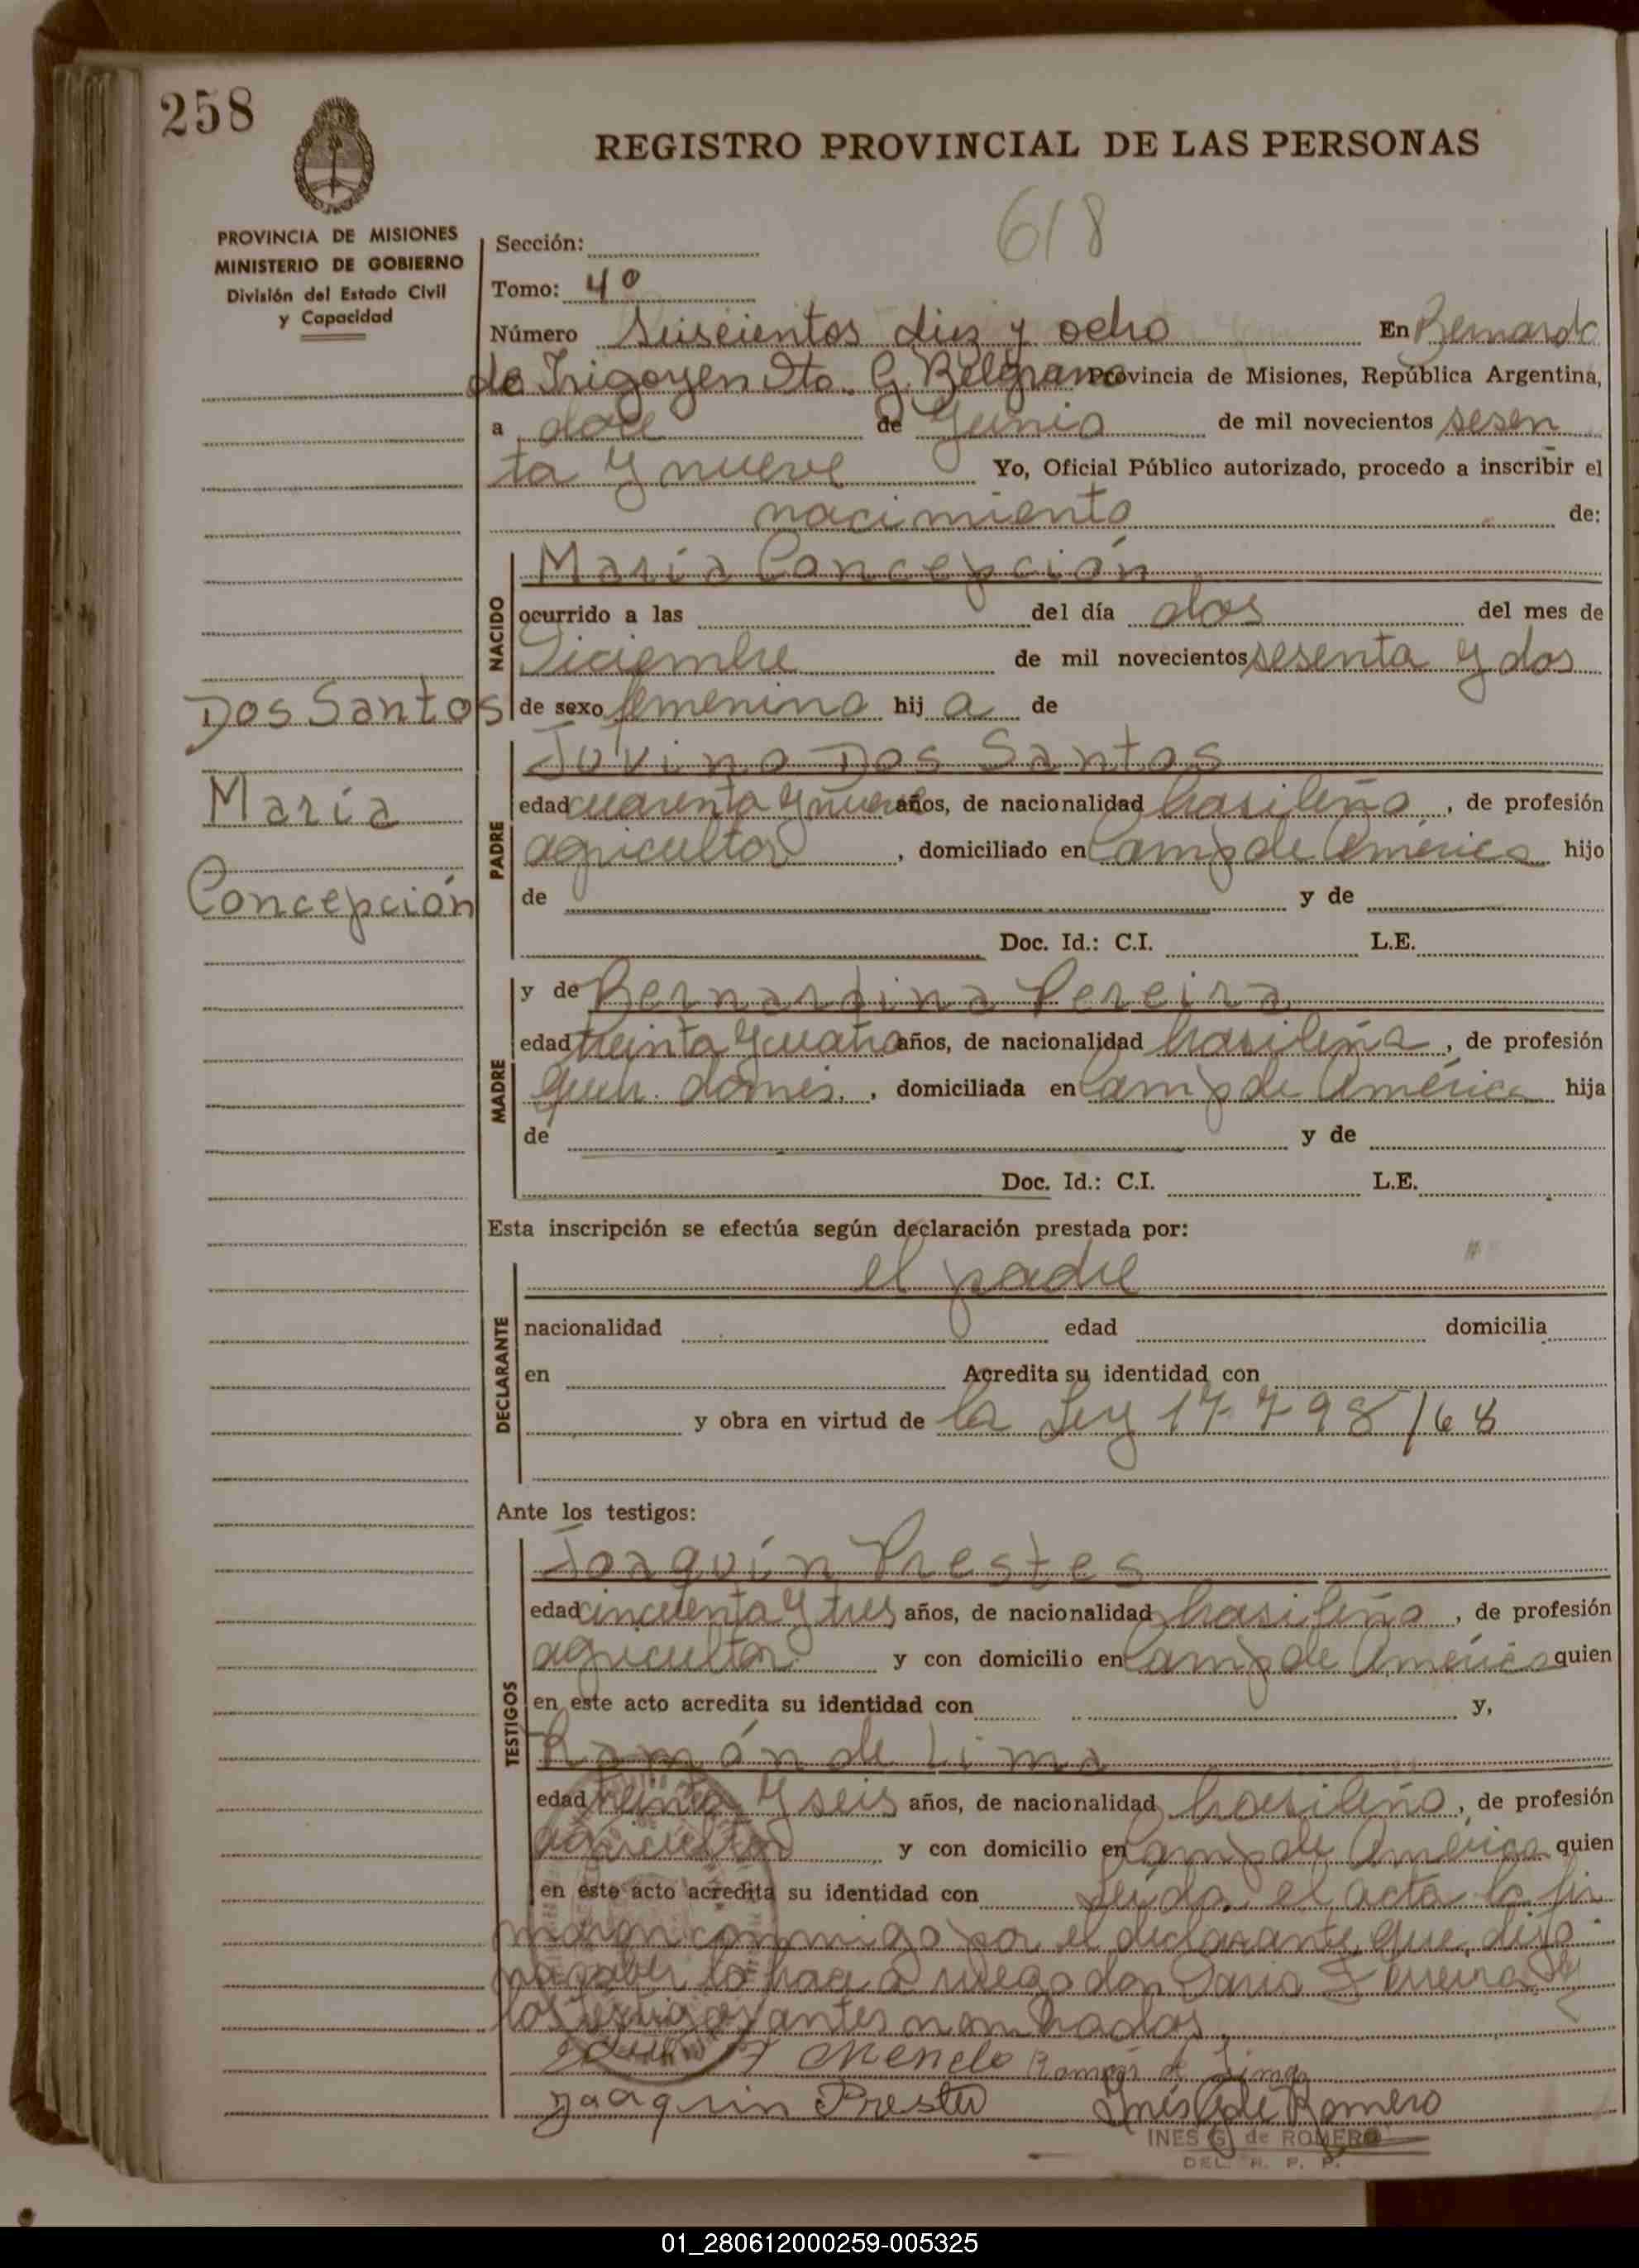 258
REGISTRO PROVINCIAL DE LAS PERSONAS
618
PROVINCIA DE MISIONES
MINISTERIO DE GOBIERNO
División del Estado Civil
y Capacidad
Sección:
Tomo: 4º
Número Seiscientos diez y ocho En Bernardo
de Irigoyen Dto. G. Belgrano Provincia de Misiones, República Argentina,
a doce de Junio de mil novecientos sesen
ta y nueve Yo, Oficial Público autorizado, procedo a inscribir el
nacimiento de:
NACIDO
María Concepción
ocurrido a las del día dos del mes de
Diciembre de mil novecientos sesenta y dos
de sexo femenino hij a de
Dos Santos
María
Concepción
PADRE
Jovino Dos Santos
edad cuarenta y nueve años, de nacionalidad brasileño, de profesión
agricultor, domiciliado en Camp de América hijo
de y de
Doc. Id.: C.I. L.E.
MADRE
y de Bernardina Pereira
edad treinta y cuatro años, de nacionalidad brasileña, de profesión
queh. domés., domiciliada en Camp de América hija
de y de
Doc. Id.: C.I. L.E.
Esta inscripción se efectúa según declaración prestada por:
DECLARANTE
el padre
nacionalidad edad domicilia
en Acredita su identidad con
y obra en virtud de la Ley 17798/68
Ante los testigos:
TESTIGOS
Joaquín Prestes
edad cincuenta y tres años, de nacionalidad brasileño, de profesión
agricultor y con domicilio en Camp de América quien
en este acto acredita su identidad con y,
Ramón de Lima
edad treinta y seis años, de nacionalidad brasileño, de profesión
agricultor y con domicilio en Camp de América quien
en este acto acredita su identidad con Leída el acta la fir
maron conmigo por el declarante que dijo
no saber lo hace a ruego don Ferreira y
los testigos antes nombrados.
Ramón d Lima
Joaquin Prestes Inés G de Romero
INES G. de ROMERO
DEL. R. P. P.
01_280612000259-005325